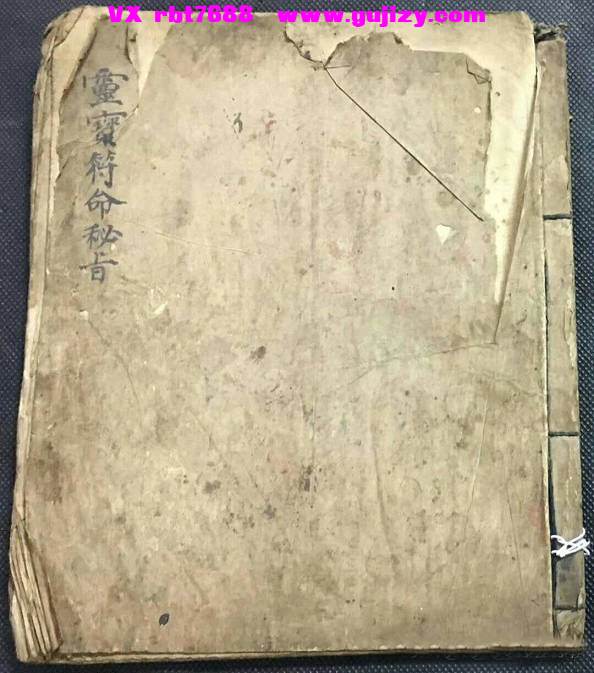 VX rbt7888 www.gujizy.com
靈寳符命秘旨